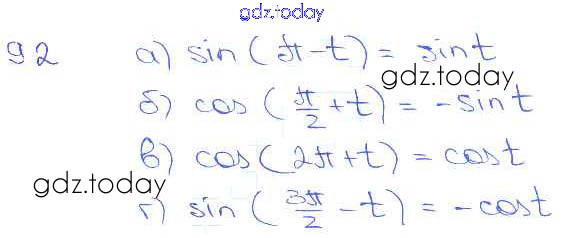 gdz.today
92 а) sin(π-t) = sint
gdz.today
б) cos(π/2+t) = -sint
в) cos(2π+t) = cost
gdz.today
г) sin(3π/2-t) = -cost